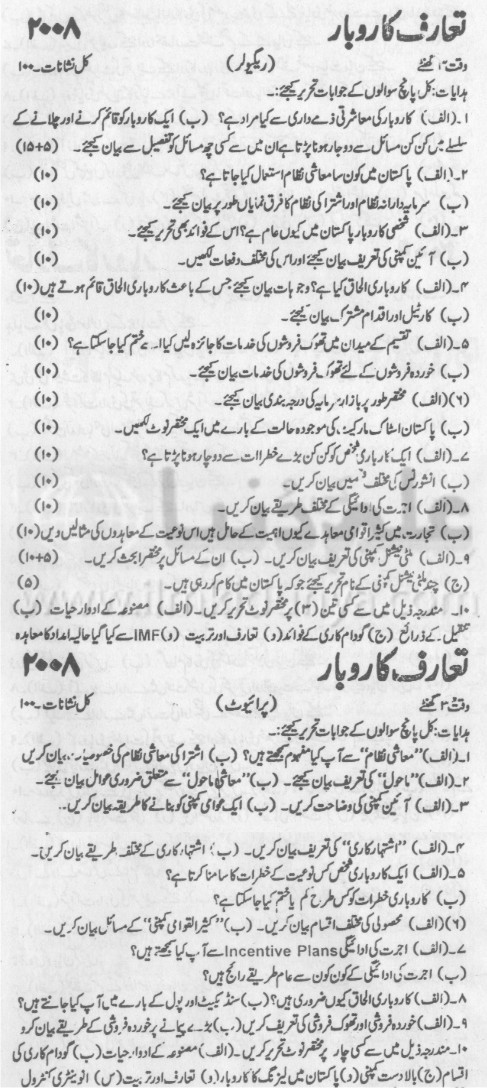 تعارف کاروبار ۲۰۰۸
وقت ۳ گھنٹے (ریگولر) کل نشانات۔۱۰۰
ہدایات: کل پانچ سوالوں کے جوابات تحریر کیجئے:۔
۱۔ (الف) کاروبار کی معاشرتی ذمے داری سے کیا مراد ہے؟ (ب) ایک کاروبار کو قائم کرنے اور چلانے کے
سلسلے میں کن کن مسائل سے دوچار ہونا پڑتا ہے ان میں سے کسی چھ مسائل کو تفصیل سے بیان کیجئے۔ (۵+۱۵)
۲۔ (الف) پاکستان میں کون سا معاشی نظام استعمال کیا جاتا ہے؟ (۱۰)
(ب) سرمایہ دارانہ نظام اور اشتراکی نظام کا فرق نمایاں طور پر بیان کیجئے۔ (۱۰)
۳۔ (الف) شخصی کاروبار پاکستان میں کیوں عام ہے؟ اس کے فوائد بھی تحریر کیجئے۔ (۱۰)
(ب) آئین کمپنی کی تعریف بیان کیجئے اور اس کی مختلف دفعات لکھیں۔ (۱۰)
۴۔ (الف) کاروباری الحاق کیا ہے؟ وجوہات بیان کیجئے جس کے باعث کاروباری الحاق قائم ہوتے ہیں (۱۰)
(ب) کارٹیل اور اقدام مشترک بیان کیجئے۔ (۱۰)
۵۔ (الف) تقسیم کے میدان میں تھوک فروشوں کی خدمات کا جائزہ لیں کیا اسے ختم کیا جاسکتا ہے؟ (۱۰)
(ب) خوردہ فروشوں کے لئے تھوک فروشوں کی خدمات بیان کیجئے۔ (۱۰)
(۶) (الف) مختصر طور پر بازار سرمایہ کی درجہ بندی بیان کیجئے۔ (۱۰)
(ب) پاکستان اسٹاک مارکیٹ، کی موجودہ حالت کے بارے میں ایک مختصر نوٹ لکھیں۔ (۱۰)
۷۔ (الف) ایک کاروباری شخص کو کن کن بڑے خطرات سے دوچار ہونا پڑتا ہے؟ (۱۰)
(ب) انشورنس کی مختلف قسمیں بیان کیجئے۔ (۱۰)
۸۔ (الف) اجرت کی ادائیگی کے مختلف طریقے بیان کریں۔ (۱۰)
(ب) تجارت، میں کثیر اقوامی معاہدے کیوں اہمیت کے حامل ہیں اس نوعیت کے معاہدوں کی مثالیں دیں (۱۰)
۹۔ (الف) ملٹی نیشنل کمپنی کی تعریف بیان کریں۔ (ب) ان کے مسائل پر مختصراً بحث کریں۔ (۵+۱۰)
(ج) چند ملٹی نیشنل کمپنی کے نام تحریر کیجئے جو کہ پاکستان میں کام کررہی ہیں۔ (۵)
۱۰۔ مندرجہ ذیل میں سے کسی تین (۳) پر مختصر نوٹ تحریر کریں۔ (الف) مصنوعہ کے ادوار حیات (ب)
تنقیل کے ذرائع (ج) گودام کاری کے فوائد (د) تعارف اور تربیت (و) IMF سے کیا گیا حالیہ امداد کا معاہدہ
تعارف کاروبار ۲۰۰۸
وقت ۳ گھنٹے (پرائیوٹ) کل نشانات۔۱۰۰
ہدایات: کل پانچ سوالوں کے جوابات تحریر کیجئے:۔
۱۔ (الف) "معاشی نظام" سے آپ کیا مفہوم سمجھتے ہیں؟ (ب) اشتراکی معاشی نظام کی خصوصیات بیان کریں
۲۔ (الف) "ماحول" کی تعریف بیان کیجئے۔ (ب) "معاشی ماحول" سے متعلق ضروری عوامل بیان کیجئے۔
۳۔ (الف) آئین کمپنی کی وضاحت کریں۔ (ب) ایک عوامی کمپنی کو بنانے کا طریقہ بیان کریں۔
۴۔ (الف) "اشتہار کاری" کی تعریف بیان کریں۔ (ب) اشتہار کاری کے مختلف طریقے بیان کریں۔
۵۔ (الف) ایک کاروباری شخص کس نوعیت کے خطرات کا سامنا کرتا ہے؟
(ب) کاروباری خطرات کو کس طرح کم یا ختم کیا جاسکتا ہے؟
(۶) (الف) محصولی کی مختلف اقسام بیان کریں۔ (ب) "کثیر القوامی کمپنی" کے مسائل بیان کریں۔
۷۔ (الف) اجرت کی ادائیگی Incentive Plans سے آپ کیا سمجھتے ہیں؟
(ب) اجرت کی ادائیگی کے کون کون سے عام طریقے رائج ہیں؟
۸۔ (الف) کاروباری الحاق کیوں ضروری ہیں؟ (ب) سنڈیکیٹ اور پول کے بارے میں آپ کیا جانتے ہیں؟
۹۔ (الف) خوردہ فروشی اور تھوک فروشی کی تعریف کریں (ب) بڑے پیمانے پر خوردہ فروشی کے طریقے بیان کرو
۱۰۔ مندرجہ ذیل میں سے کسی چار پر مختصر نوٹ تحریر کریں۔ (الف) مصنوعہ کے ادوار حیات (ب) گودام کاری کی
اقسام (ج) بالادست کمپنی (د) پاکستان میں لیزنگ کا کاروبار (و) تعارف اور تربیت (س) انوینٹری کنٹرول